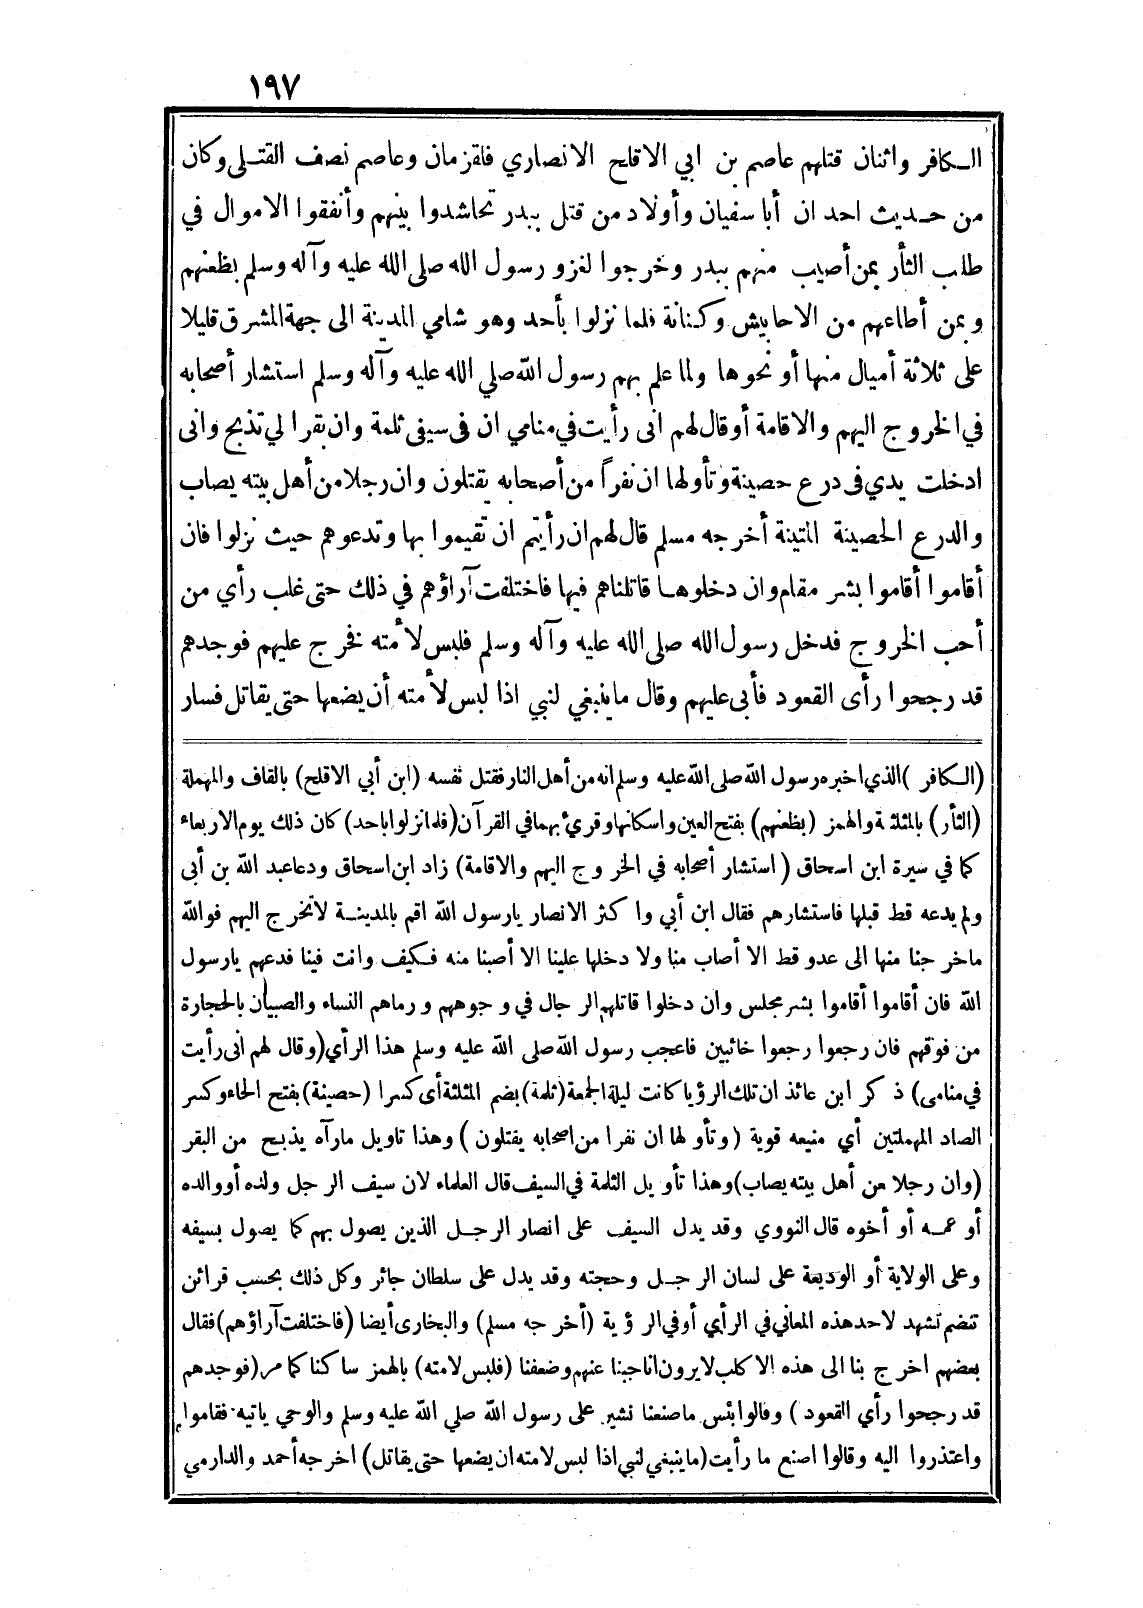 ١٩٧
الكافر واثنان قتلهم عاصم بن ابي الاقلح الانصاري فلقزمان وعاصم نصف القتلى وكان
من حديث احد ان أبا سفيان وأولاد من قتل ببدر تحاشدوا بينهم وأنفقوا الاموال في
طلب الثأر بمن أصيب منهم ببدر وخرجوا لغزو رسول الله صلى الله عليه وآله وسلم بظعنهم
وبمن أطاعهم من الاحابيش وكنانة فلما نزلوا بأحد وهو شامي المدينة الى جهة المشرق قليلا
على ثلاثة أميال منها أو نحوها ولما علم بهم رسول الله صلي الله عليه وآله وسلم استشار أصحابه
في الخروج اليهم والاقامة أوقال لهم انى رأيت في منامي ان فى سيفى ثلمة وان بقرا لي تذبح وانى
ادخلت يدي فى درع حصينة وتأولها ان نفراً من أصحابه يقتلون وان رجلا من أهل بيته يصاب
والدرع الحصينة المتينة أخرجه مسلم قال لهم ان رأيتم ان تقيموا بها وتدعوهم حيث نزلوا فان
أقاموا أقاموا بشر مقام وان دخلوها قاتلناهم فيها فاختلفت آراؤهم في ذلك حتى غلب رأي من
أحب الخروج فدخل رسول الله صلى الله عليه وآله وسلم فلبس لأمته فخرج عليهم فوجدهم
قد رجحوا رأى القعود فأبى عليهم وقال ما ينبغي لنبي اذا لبس لأمته أن يضعها حتى يقاتل فسار
(الكافر) الذي اخبره رسول الله صلى الله عليه وسلم انه من أهل النار فقتل نفسه (ابن أبي الاقلح) بالقاف والمهملة
(الثأر) بالمثلثة والهمز (بظعنهم) بفتح العين واسكانها وقرئ بهما في القرآن (فلما نزلوا باحد) كان ذلك يوم الاربعاء
كما في سيرة ابن اسحاق (استشار أصحابه في الخروج اليهم والاقامة) زاد ابن اسحاق ودعا عبد الله بن أبى
ولم يدعه قط قبلها فاستشارهم فقال ابن أبي وا كثر الانصار يارسول الله اقم بالمدينة لاتخرج اليهم فوالله
ماخرجنا منها الى عدو قط الا أصاب منا ولا دخلها علينا الا أصبنا منه فكيف وانت فينا فدعهم يارسول
الله فان أقاموا أقاموا بشر مجلس وان دخلوا قاتلهم الرجال في وجوههم ورماهم النساء والصبيان بالحجارة
من فوقهم فان رجعوا رجعوا خائبين فاعجب رسول الله صلى الله عليه وسلم هذا الرأي (وقال لهم انى رأيت
في منامى) ذكر ابن عائذ ان تلك الرؤيا كانت ليلة الجمعة (ثلمة) بضم المثلثة أى كسرا (حصينة) بفتح الحاء وكسر
الصاد المهملتين أي منيعه قوية (وتأولها ان نفرا من اصحابه يقتلون) وهذا تاويل مارآه يذبح من البقر
(وان رجلا من أهل بيته يصاب) وهذا تأويل الثلمة في السيف قال العلماء لان سيف الرجل ولده أو والده
أو عمه أو أخوه قال النووي وقد يدل السيف على انصار الرجل الذين يصول بهم كما يصول بسيفه
وعلى الولاية أو الوديعة على لسان الرجل وحجته وقد يدل على سلطان جائر وكل ذلك بحسب قرائن
تنضم تشهد لاحد هذه المعاني في الرأي أو في الرؤية (أخرجه مسلم) والبخارى أيضا (فاختلفت آراؤهم) فقال
بعضهم اخرج بنا الى هذه الاكلب لايرون اناجبنا عنهم وضعفنا (فلبس لامته) بالهمز ساكنا كما مر (فوجدهم
قد رجحوا رأي القعود) وقالوا بئس ماصنعنا نشير على رسول الله صلي الله عليه وسلم والوحي ياتيه فقاموا
واعتذروا اليه وقالوا اصنع ما رأيت (ما ينبغي لنبي اذا لبس لامته ان يضعها حتى يقاتل) اخرجه أحمد والدارمي